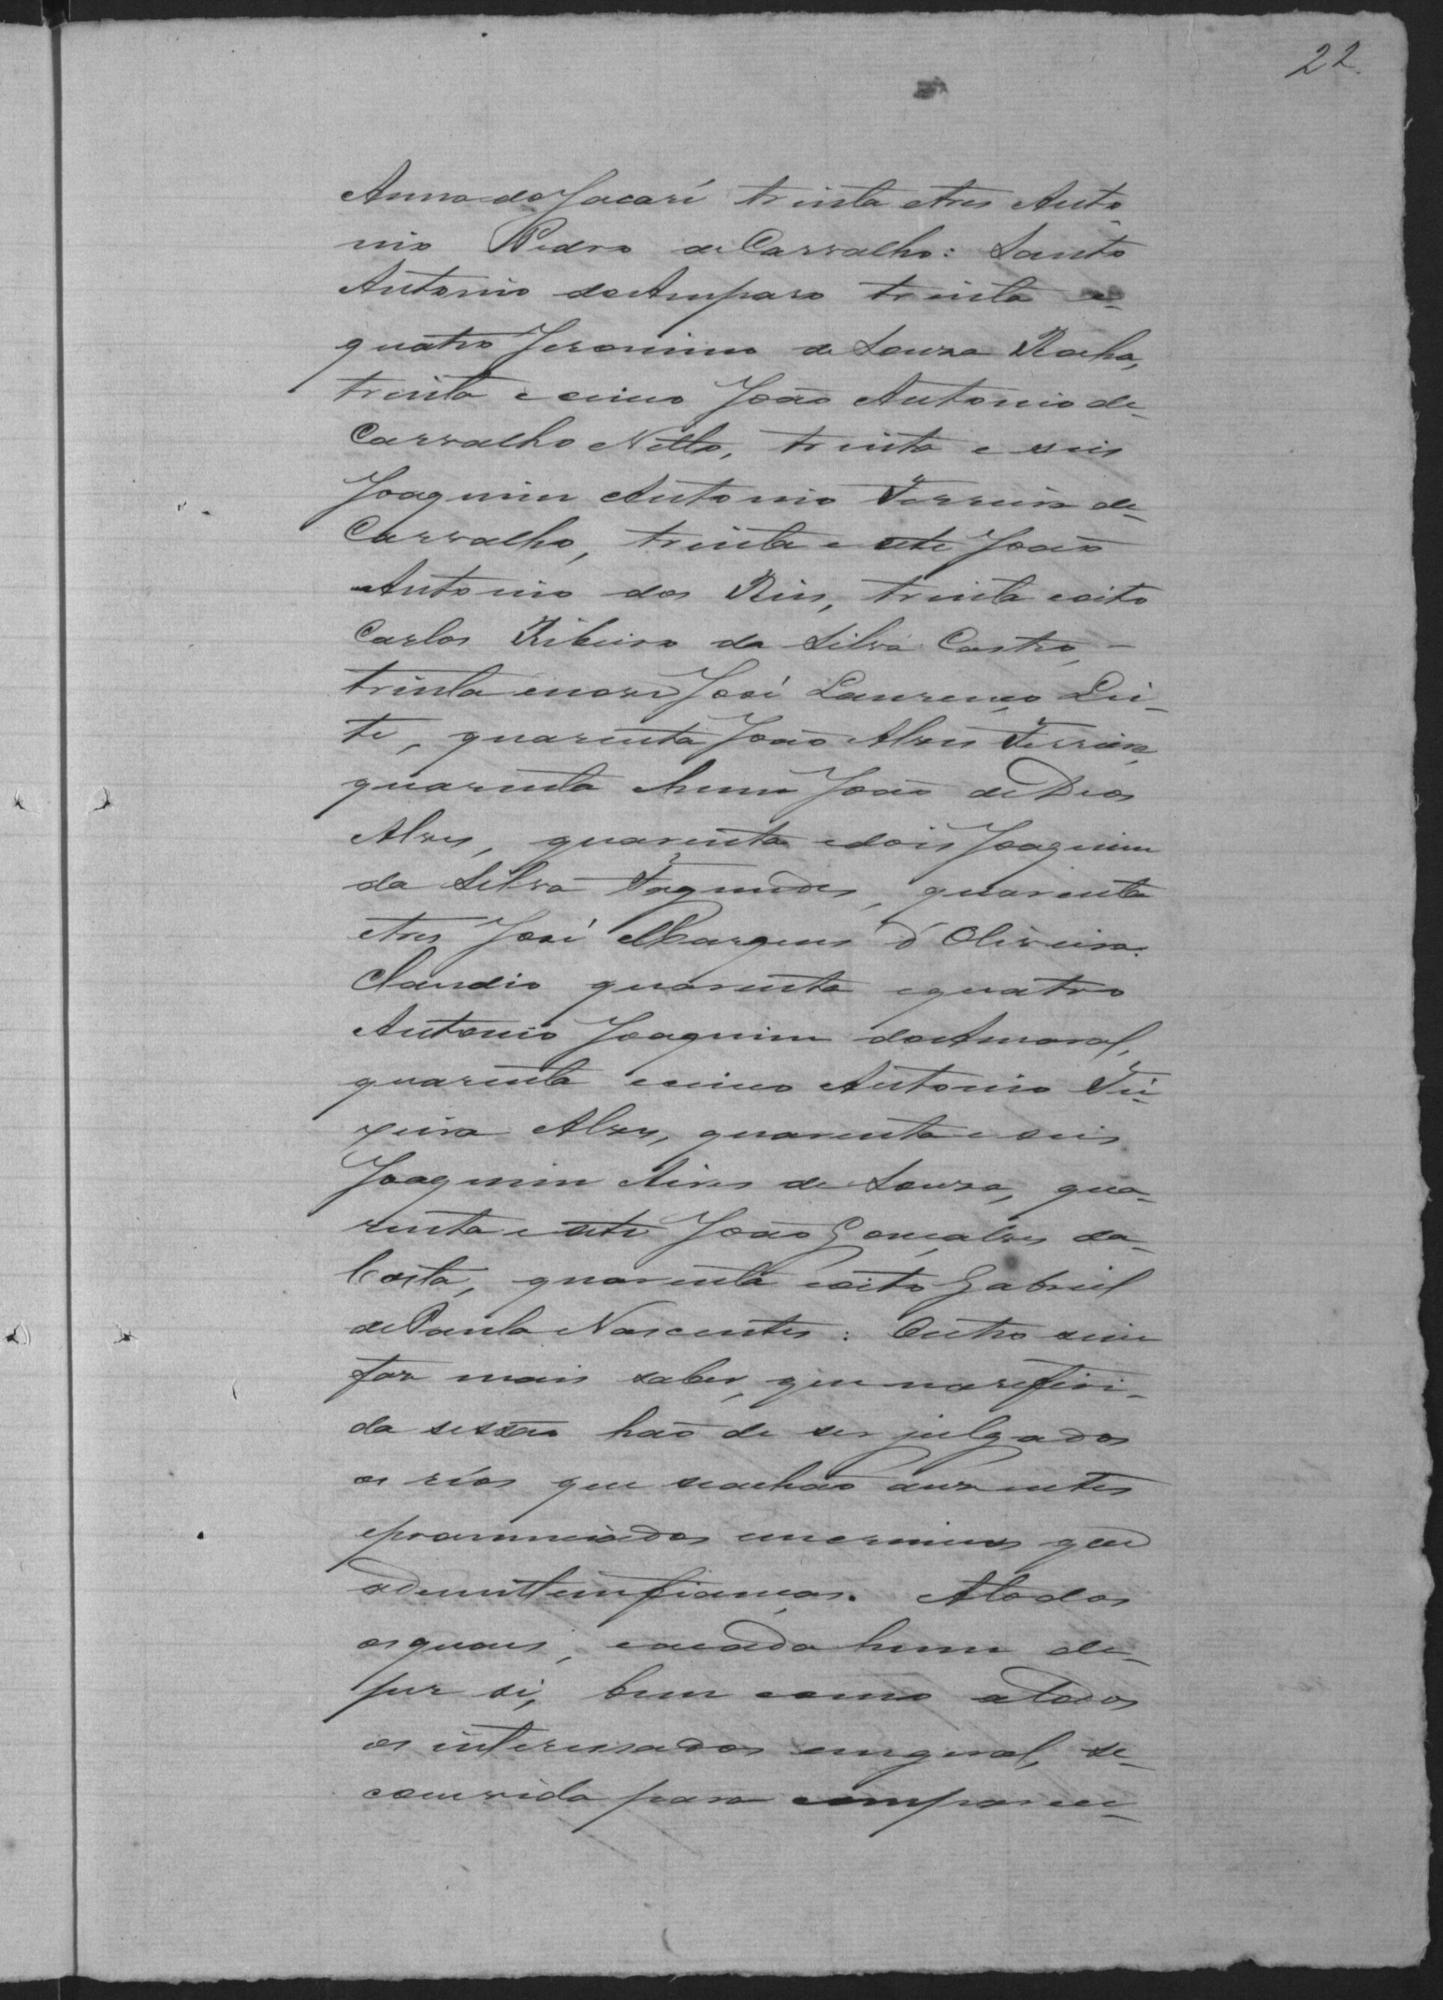 22
Anna do Jacaré trinta e tres Anto-
nio Pedro de Carvalho: Santo
Antonio do Amparo trinta e-
quatro Jeronimo de Souza Rocha,
trinta e cinco João Antonio de-
Carvalho Netto, trinta e seis
Joaquim Antonio Ferreira de-
Carvalho, trinta e sete João
Antonio dos Reis, trinta e oito
Carlos Ribeiro da Silva Castro, -
trinta e nove José Laurenço Lei-
te, quarenta João Alves Ferreira,
quarenta e hum João de Deos
Alves, quarenta e dois Joaquim
da Silva Fagundes, quarenta
e tres José Marques d'Oliveira.
Claudio quarenta e quatro
Antonio Joaquim do Amaral,
quarenta e cinco Antonio Tei-
xeira Alves, quarenta e seis
Joaquim Aires de Souza, qua-
renta e sete João Gonçalves da-
Costa, quarenta e oito Gabriel
de Paula Nascentes: Outro sim
faz mais saber, que na referi-
da sessão hão de ser julgados
os réos que se achão auzentes
e pronunciados em crimes que
admittem fianças. A todos
os quaes, e a cada hum de-
per si, bem como a todos
os interessados em geral, se-
convida para comparece-